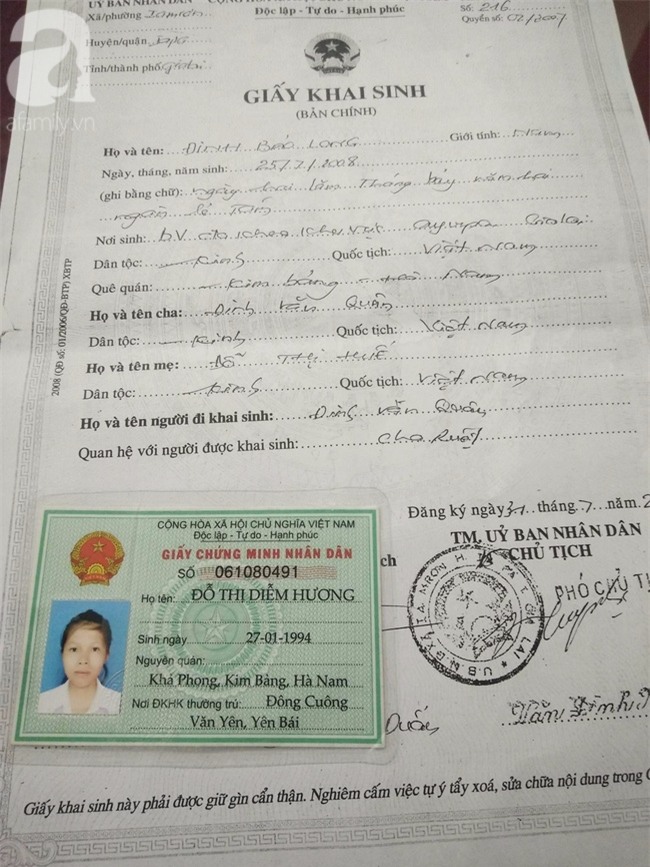 ỦY BAN NHÂN DÂN
Độc lập - Tự do - Hạnh phúc
Số: 216
Xã/phường
Quyển số: 01/2007
Huyện/quận
Tỉnh/thành phố
a
afamily.vn
GIẤY KHAI SINH
(BẢN CHÍNH)
Họ và tên: ĐINH BẢO LONG Giới tính: Nam
Ngày, tháng, năm sinh: 25/7/2008
(ghi bằng chữ): ngày hai lăm tháng bảy năm hai
Nơi sinh: b.V
Dân tộc: Kinh Quốc tịch: Việt Nam
Quê quán: Kim bảng Hà Nam
Họ và tên cha: Đinh Văn Quân
Dân tộc: Kinh Quốc tịch: Việt Nam
Họ và tên mẹ: ĐỖ THỊ HUẾ
Dân tộc: Kinh Quốc tịch: Việt Nam
Họ và tên người đi khai sinh: Đinh Văn Quân
Quan hệ với người được khai sinh: Cha Ruột
2008 (QĐ số: 01/2006/QĐ-BTP) XBTP
Đăng ký ngày 31 tháng 7 năm 2
TM. UỶ BAN NHÂN DÂN
CHỦ TỊCH
PHÓ CHỦ T
ch
CỘNG HÒA XÃ HỘI CHỦ NGHĨA VIỆT NAM
Độc lập - Tự do - Hạnh phúc
GIẤY CHỨNG MINH NHÂN DÂN
SỐ 061080491
Họ tên: ĐỖ THỊ DIỄM HƯƠNG
Sinh ngày 27-01-1994
Nguyên quán:
Khả Phong, Kim Bảng, Hà Nam
Nơi ĐKHK thường trú: Đông Cuông
Văn Yên, Yên Bái
Giấy khai sinh này phải được giữ gìn cẩn thận. Nghiêm cấm việc tự ý tẩy xoá, sửa chữa nội dung trong